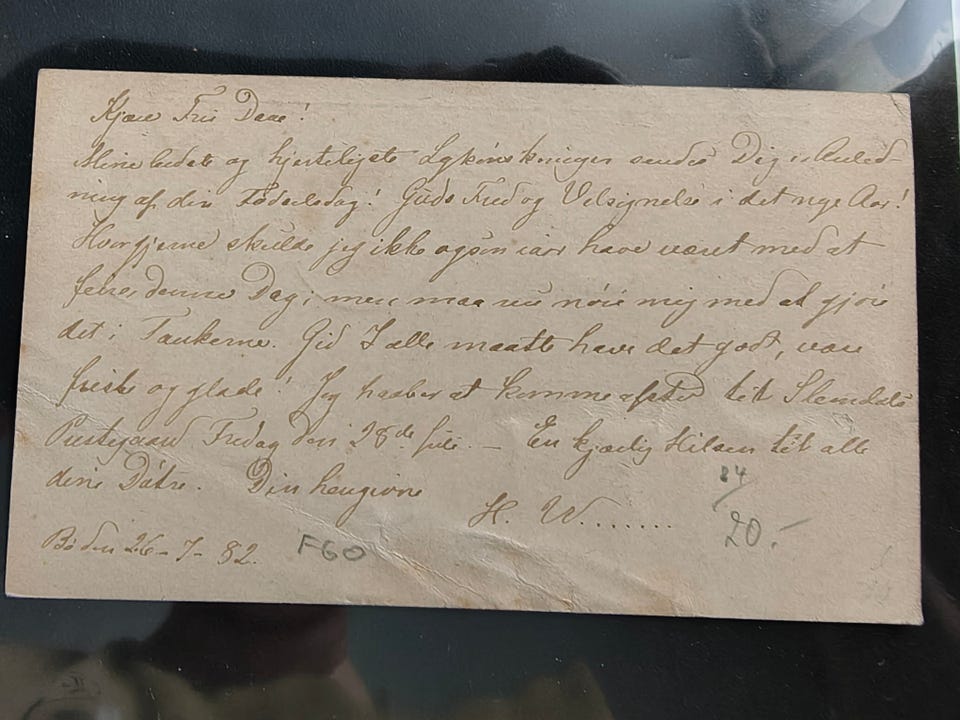 Kjære Fru Daae!
Mine bedste og hjerteligste Lykønskninger sendes Dig i Anled-
ning af din Fødselsdag! Guds Fred og Velsignelse i det nye Aar!
Hvor gjerne skulde jeg ikke ogsaa iaar have været med at
feire denne Dag; men maa nu nøie mig med at gjøre
det i Tankerne. Gid I alle maatte have det godt, være
friske og glade! Jeg haaber at komme afsted til Slemdals
Prestegaard Fredag den 28de Juli. – En kjærlig Hilsen til alle
dine Døtre. Din hengivne
H. W.......
Bø den 26-7-82.
FGO
84/
20.-